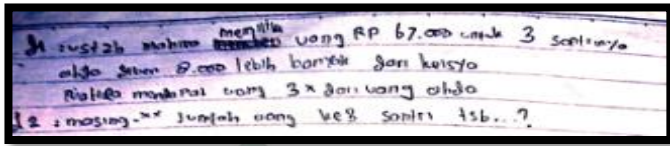 D1 : ustzh mahira memiliki uang RP 67.000 untuk 3 santrinya
aldo 8.000 lebih banyak dari keisya
mendapat uang 3x dari uang aldo
D2 : masing-** Jumlah uang ke3 santri tsb...?